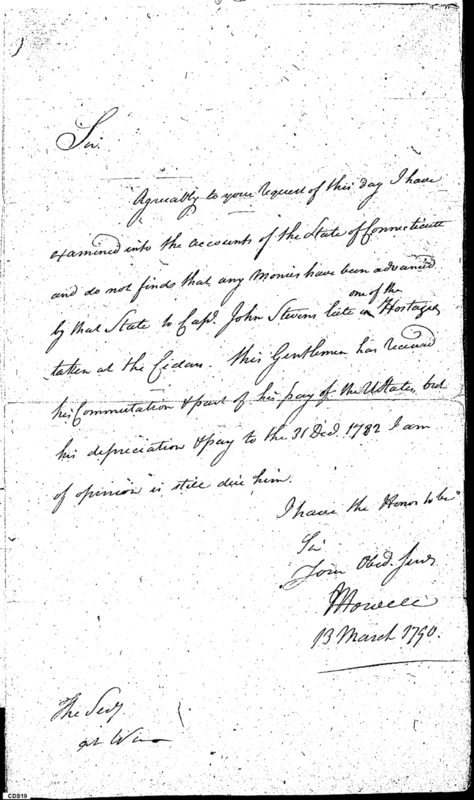 Sir.
Agreeably to your request of this day I have
examined into the accounts of the State of Connecticut
and do not finds that any Monies have been advanced
one of the
by that State to Capt. John Stevens late a Hostages
taken at the Cedars. This Gentleman has received
his Commutation & part of his pay of the UStates, but
his depreciation & pay to the 31 Decd. 1782 I am
of opinion is still due him.
I have the Honor to be
Sir
Your Obed. Servt
JHowell
13 March 1790.
The Secy
at War
CDS19